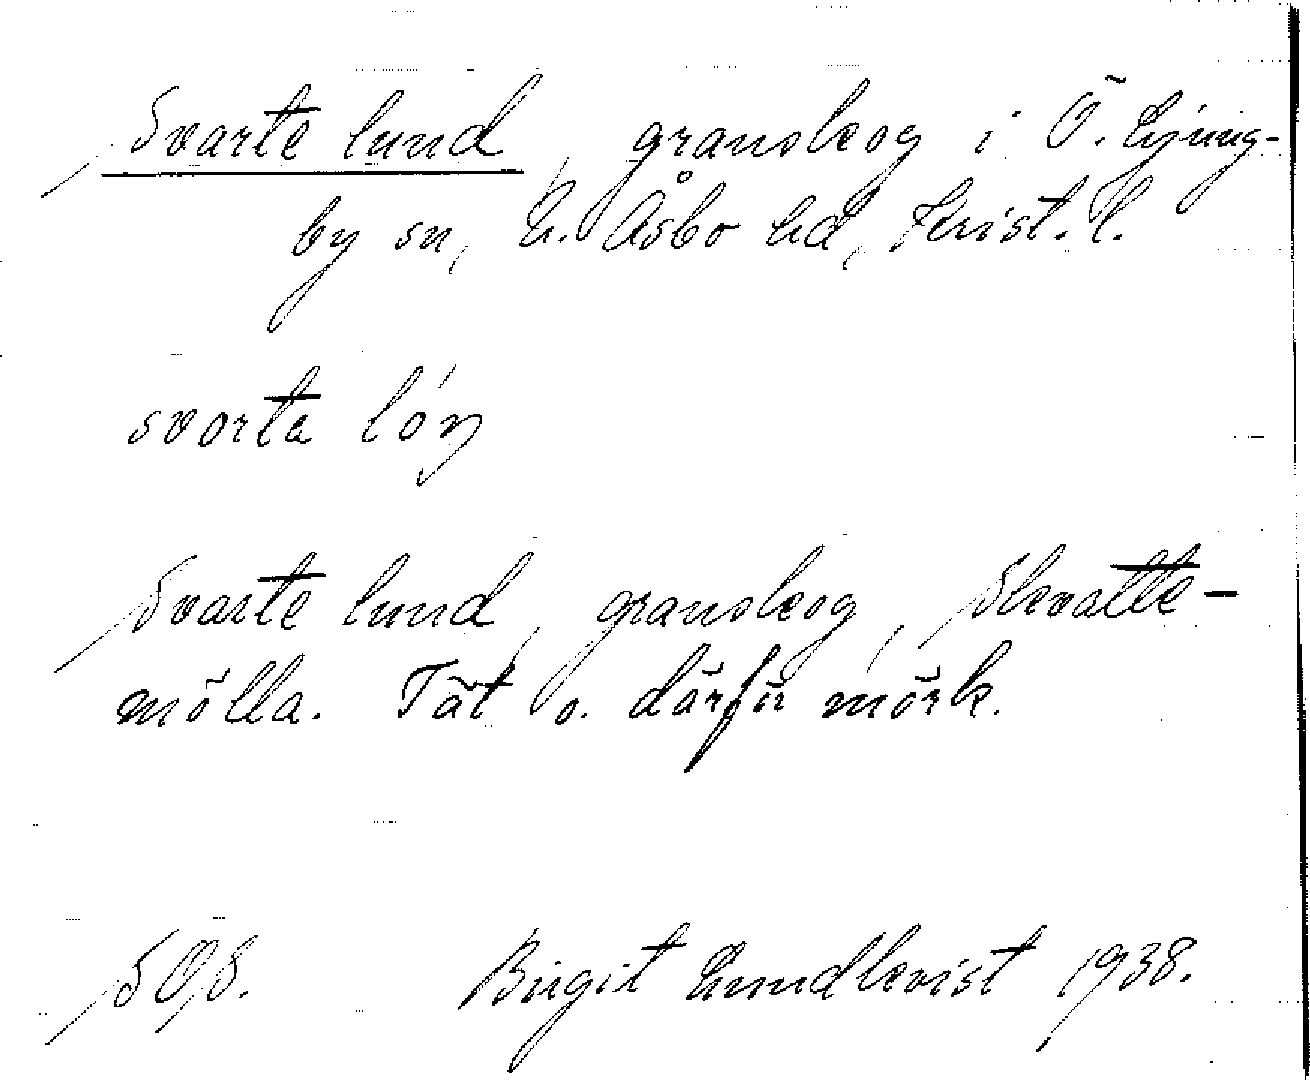 Svarte lund, granskog i Ö. Ljung-
by sn, N. Åsbo hd, Krist. l.
svarta lón
Svarte lund, granskog, Skvatte-
mölla. Tät o. därför mörk.
Birgit Lundkvist 1938.